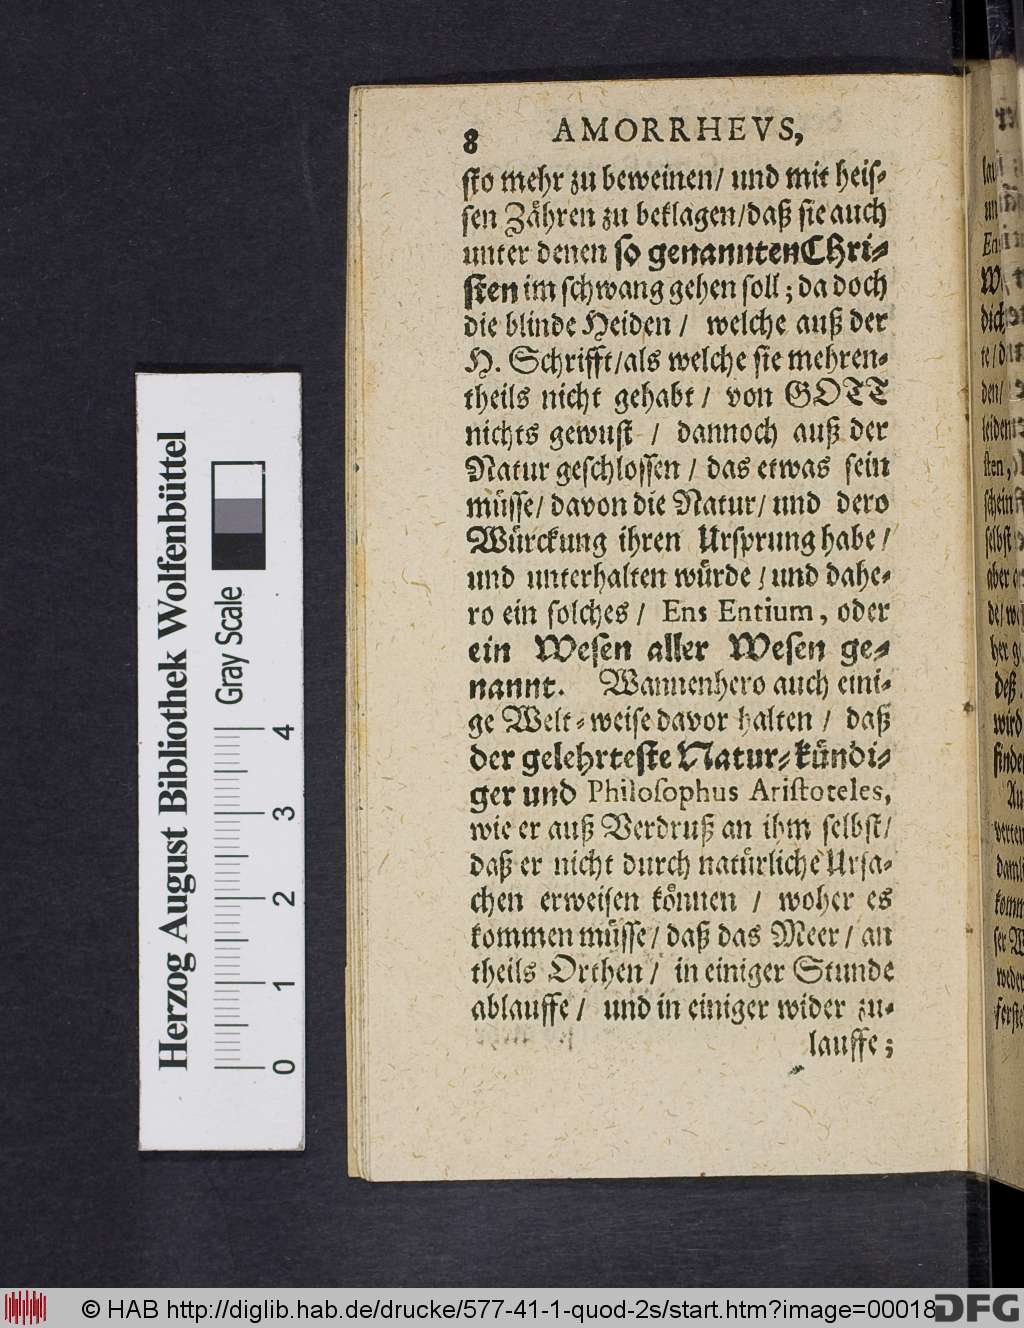 8 AMORRHEVS,
sto mehr zu beweinen/ und mit heis-
sen Zähren zu beklagen/daß sie auch
unter denen so genannten Chri-
sten im schwang gehen soll; da doch
die blinde Heiden / welche auß der
H. Schrifft/als welche sie mehren-
theils nicht gehabt / von GOTT
nichts gewust / dannoch auß der
Natur geschlossen / das etwas sein
müsse/ davon die Natur/ und dero
Würckung ihren Ursprung habe /
und unterhalten würde / und dahe-
ro ein solches / Ens Entium, oder
ein Wesen aller Wesen ge-
nannt. Wannenhero auch eini-
ge Welt-weise davor halten / daß
der gelehrteste Natur-kündi-
ger und Philosophus Aristoteles,
wie er auß Verdruß an ihm selbst/
daß er nicht durch natürliche Ursa-
chen erweisen können / woher es
kommen müsse/ daß das Meer/ an
theils Orthen / in einiger Stunde
ablauffe / und in einiger wider zu-
lauffe;
Herzog August Bibliothek Wolfenbüttel
Gray Scale
0 1 2 3 4
© HAB http://diglib.hab.de/drucke/577-41-1-quod-2s/start.htm?image=00018
DFG